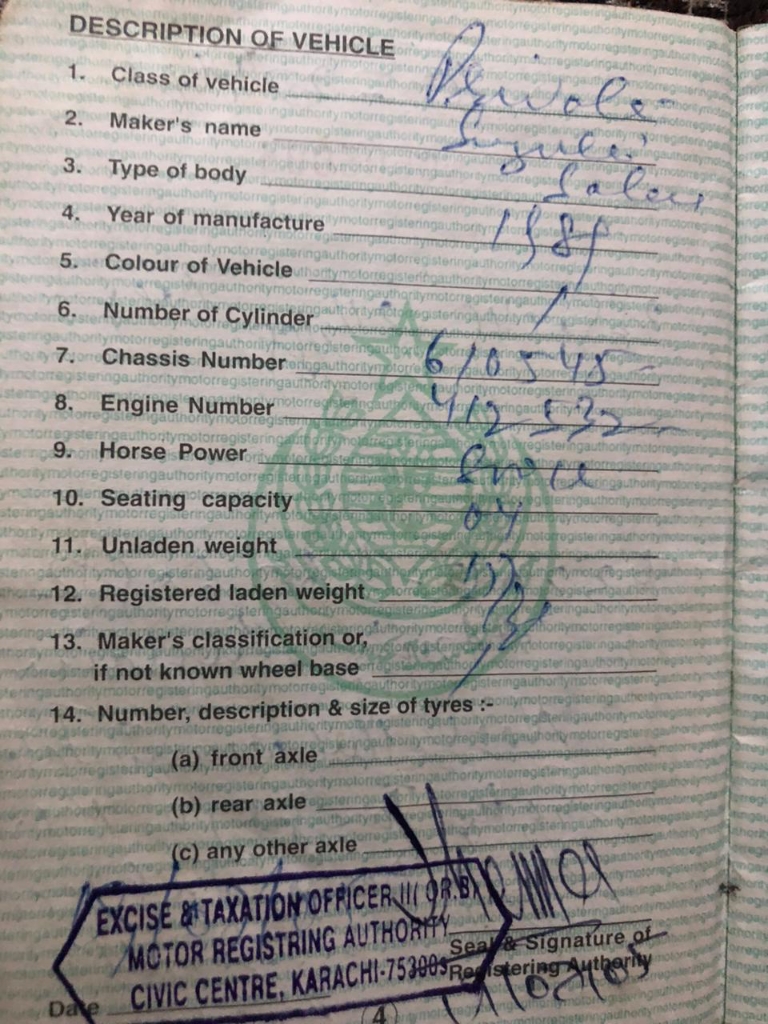 DESCRIPTION OF VEHICLE
1. Class of vehicle Private
2. Maker's name Suzuki
3. Type of body Saloon
4. Year of manufacture 1989
5. Colour of Vehicle
6. Number of Cylinder
7. Chassis Number 610545
8. Engine Number 412532
9. Horse Power
10. Seating capacity 04
11. Unladen weight
12. Registered laden weight
13. Maker's classification or,
if not known wheel base
14. Number, description & size of tyres :-
(a) front axle
(b) rear axle
(c) any other axle
EXCISE & TAXATION OFFICER II( OR.B)
MOTOR REGISTRING AUTHORITY
CIVIC CENTRE, KARACHI-75300S
Seal & Signature of
Registering Authority
Date
4